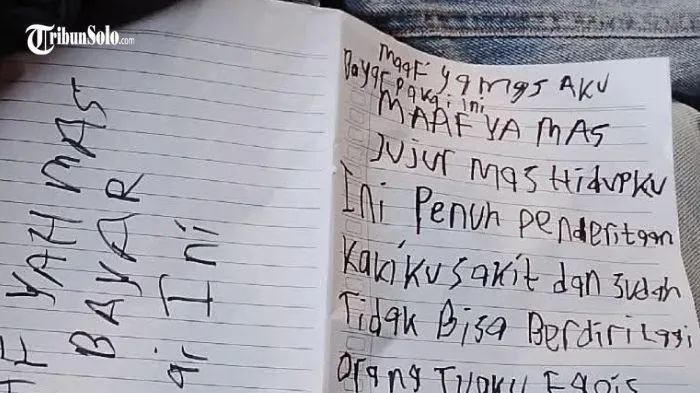 TribunSolo.com
maaf ya mas AKU
Bayar pakai ini
MAAF YA MAS
Jujur mas HidupKU
Ini Penuh penderitaan
Kakiku sakit dan sudah
Tidak Bisa Berdiri Lagi
Orang Tuaku Egois
YAH MAS
BAYAR
Ini